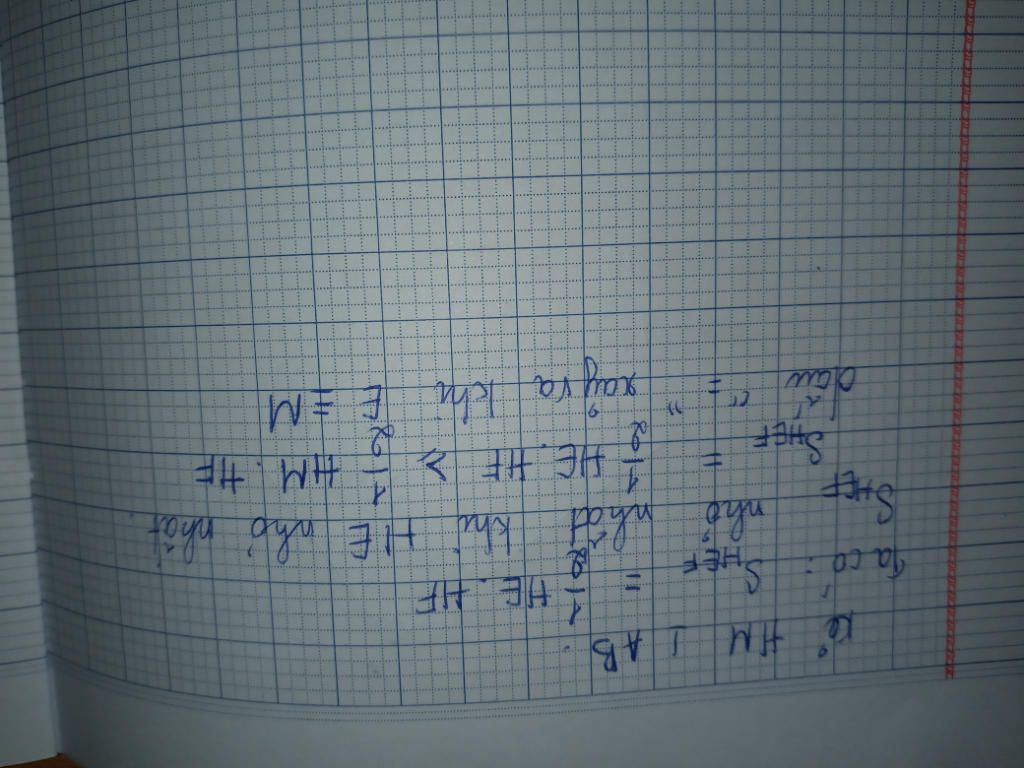 Kẻ HM ⊥ AB.
Ta có: S_HEF = 1/2 HE. HF
S_HEF nhỏ nhất khi HE nhỏ nhất.
S_HEF = 1/2 HE. HF ≥ 1/2 HM. HF
Dấu "=" xảy ra khi E ≡ M